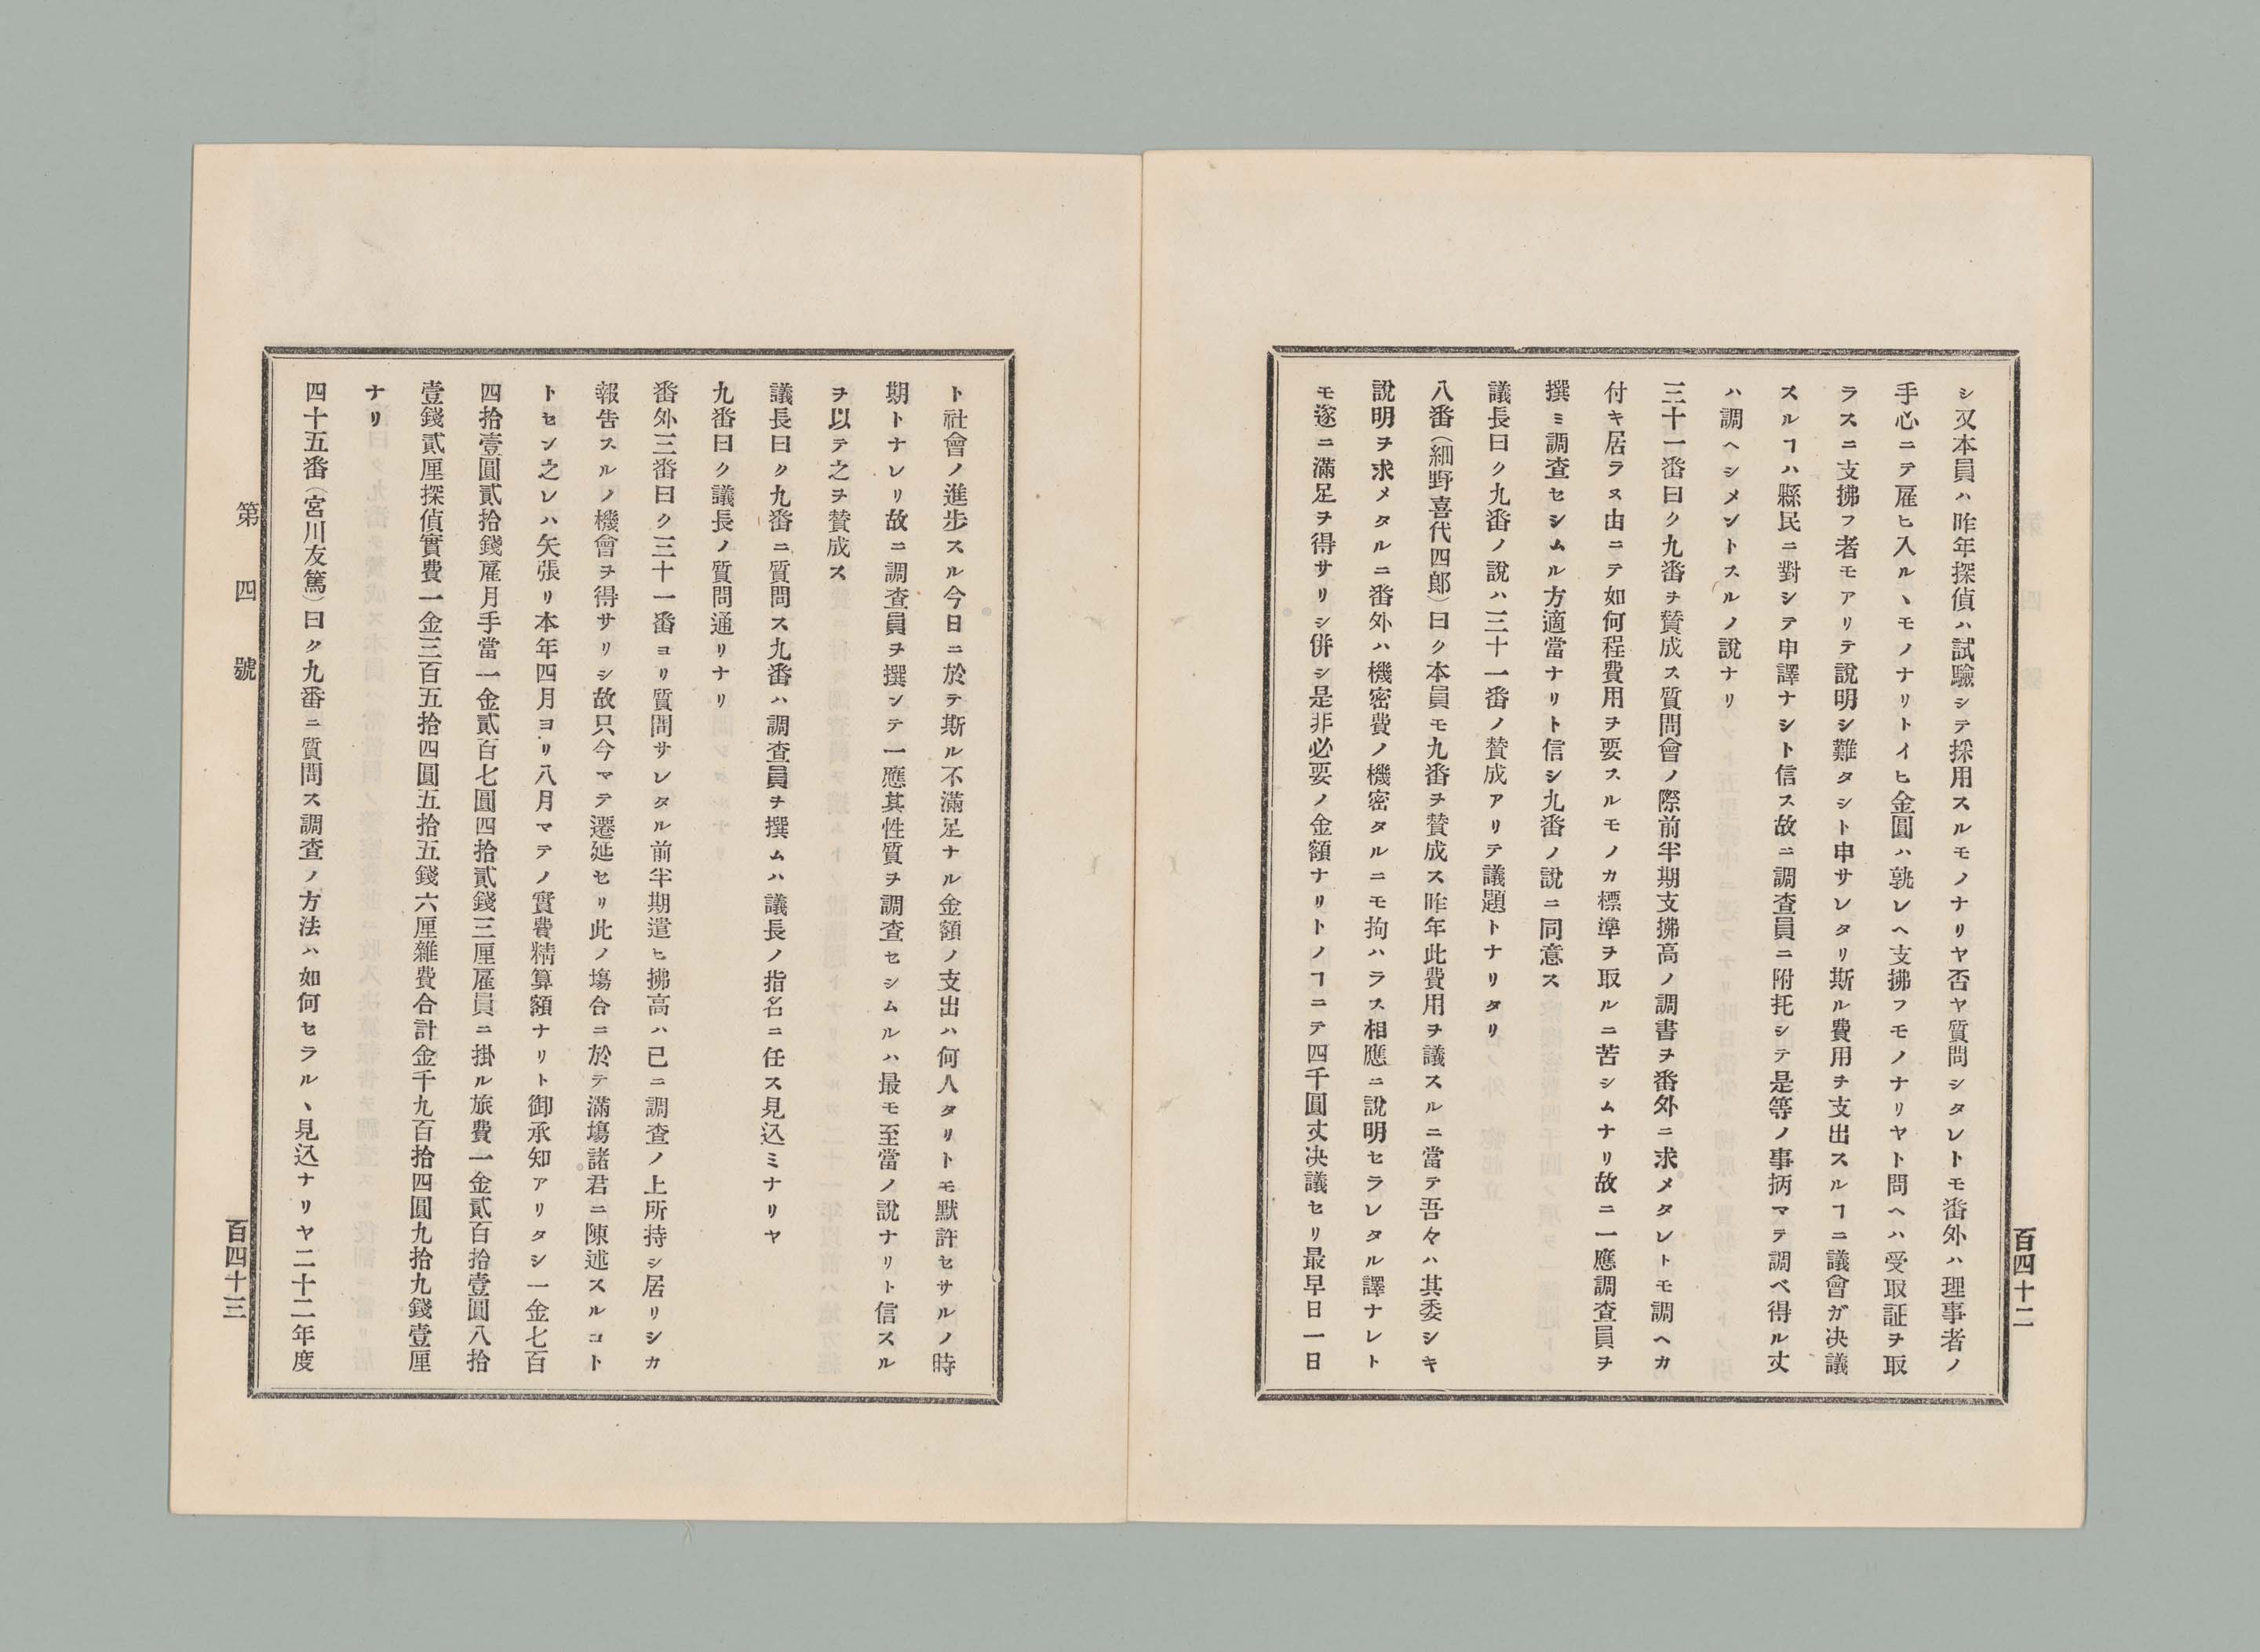 百四十二
シ又本員ハ昨年探偵ハ試驗シテ採用スルモノナリヤ否ヤ質問シタレトモ番外ハ理事者ノ
手心ニテ雇ヒ入ルヽモノナリトイヒ金圓ハ孰レヘ支拂フモノナリヤト問ヘハ受取証ヲ取
ラスニ支拂フ者モアリテ說明シ難タシト申サレタリ斯ル費用ヲ支出スルヿニ議會ガ決議
スルヿハ縣民ニ對シテ申譯ナシト信ス故ニ調查員ニ附托シテ是等ノ事柄マテ調ベ得ル丈
ハ調ヘシメントスルノ說ナリ
三十一番曰ク九番ヲ賛成ス質問會ノ際前半期支拂高ノ調書ヲ番外ニ求メタレトモ調ヘカ
付キ居ラヌ由ニテ如何程費用ヲ要スルモノカ標準ヲ取ルニ苦シムナリ故ニ一應調查員ヲ
撰ミ調查セシムル方適當ナリト信シ九番ノ說ニ同意ス
議長曰ク九番ノ說ハ三十一番ノ賛成アリテ議題トナリタリ
八番（細野喜代四郎）曰ク本員モ九番ヲ賛成ス昨年此費用ヲ議スルニ當テ吾々ハ其委シキ
說明ヲ求メタルニ番外ハ機密費ノ機密タルニモ拘ハラス相應ニ說明セラレタル譯ナレト
モ遂ニ滿足ヲ得サリシ併シ是非必要ノ金額ナリトノヿニテ四千圓丈決議セリ最早日一日
ト社會ノ進步スル今日ニ於テ斯ル不滿足ナル金額ノ支出ハ何人タリトモ默許セサルノ時
期トナレリ故ニ調查員ヲ撰ンテ一應其性質ヲ調查セシムルハ最モ至當ノ說ナリト信スル
ヲ以テ之ヲ賛成ス
議長曰ク九番ニ質問ス九番ハ調查員ヲ撰ムハ議長ノ指名ニ任ス見込ミナリヤ
九番曰ク議長ノ質問通リナリ
番外三番曰ク三十一番ヨリ質問サレタル前半期遣ヒ拂高ハ已ニ調查ノ上所持シ居リシカ
報告スルノ機會ヲ得サリシ故只今マテ遷延セリ此ノ塲合ニ於テ滿塲諸君ニ陳述スルコト
トセン之レハ矢張リ本年四月ヨリ八月マテノ實費精算額ナリト御承知アリタシ一金七百
四拾壹圓貳拾錢雇月手當一金貳百七圓四拾貳錢三厘雇員ニ掛ル旅費一金貳百拾壹圓八拾
壹錢貳厘探偵實費一金三百五拾四圓五拾五錢六厘雜費合計金千九百拾四圓九拾九錢壹厘
ナリ
四十五番（宮川友篤）曰ク九番ニ質問ス調查ノ方法ハ如何セラルヽ見込ナリヤ二十二年度
第四號
百四十三